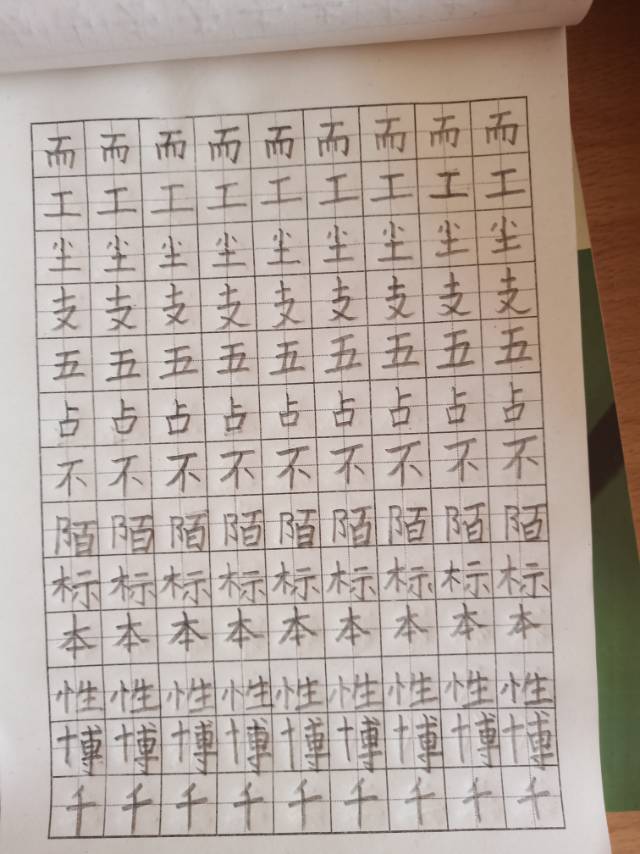 而而而而而而而而而
工工工工工工工工工
尘尘尘尘尘尘尘尘尘
支支支支支支支支支
五五五五五五五五五
占占占占占占占占占
不不不不不不不不不
陌陌陌陌陌陌陌陌陌
标标标标标标标标标
本本本本本本本本本
性性性性性性性性性
博博博博博博博博博
千千千千千千千千千